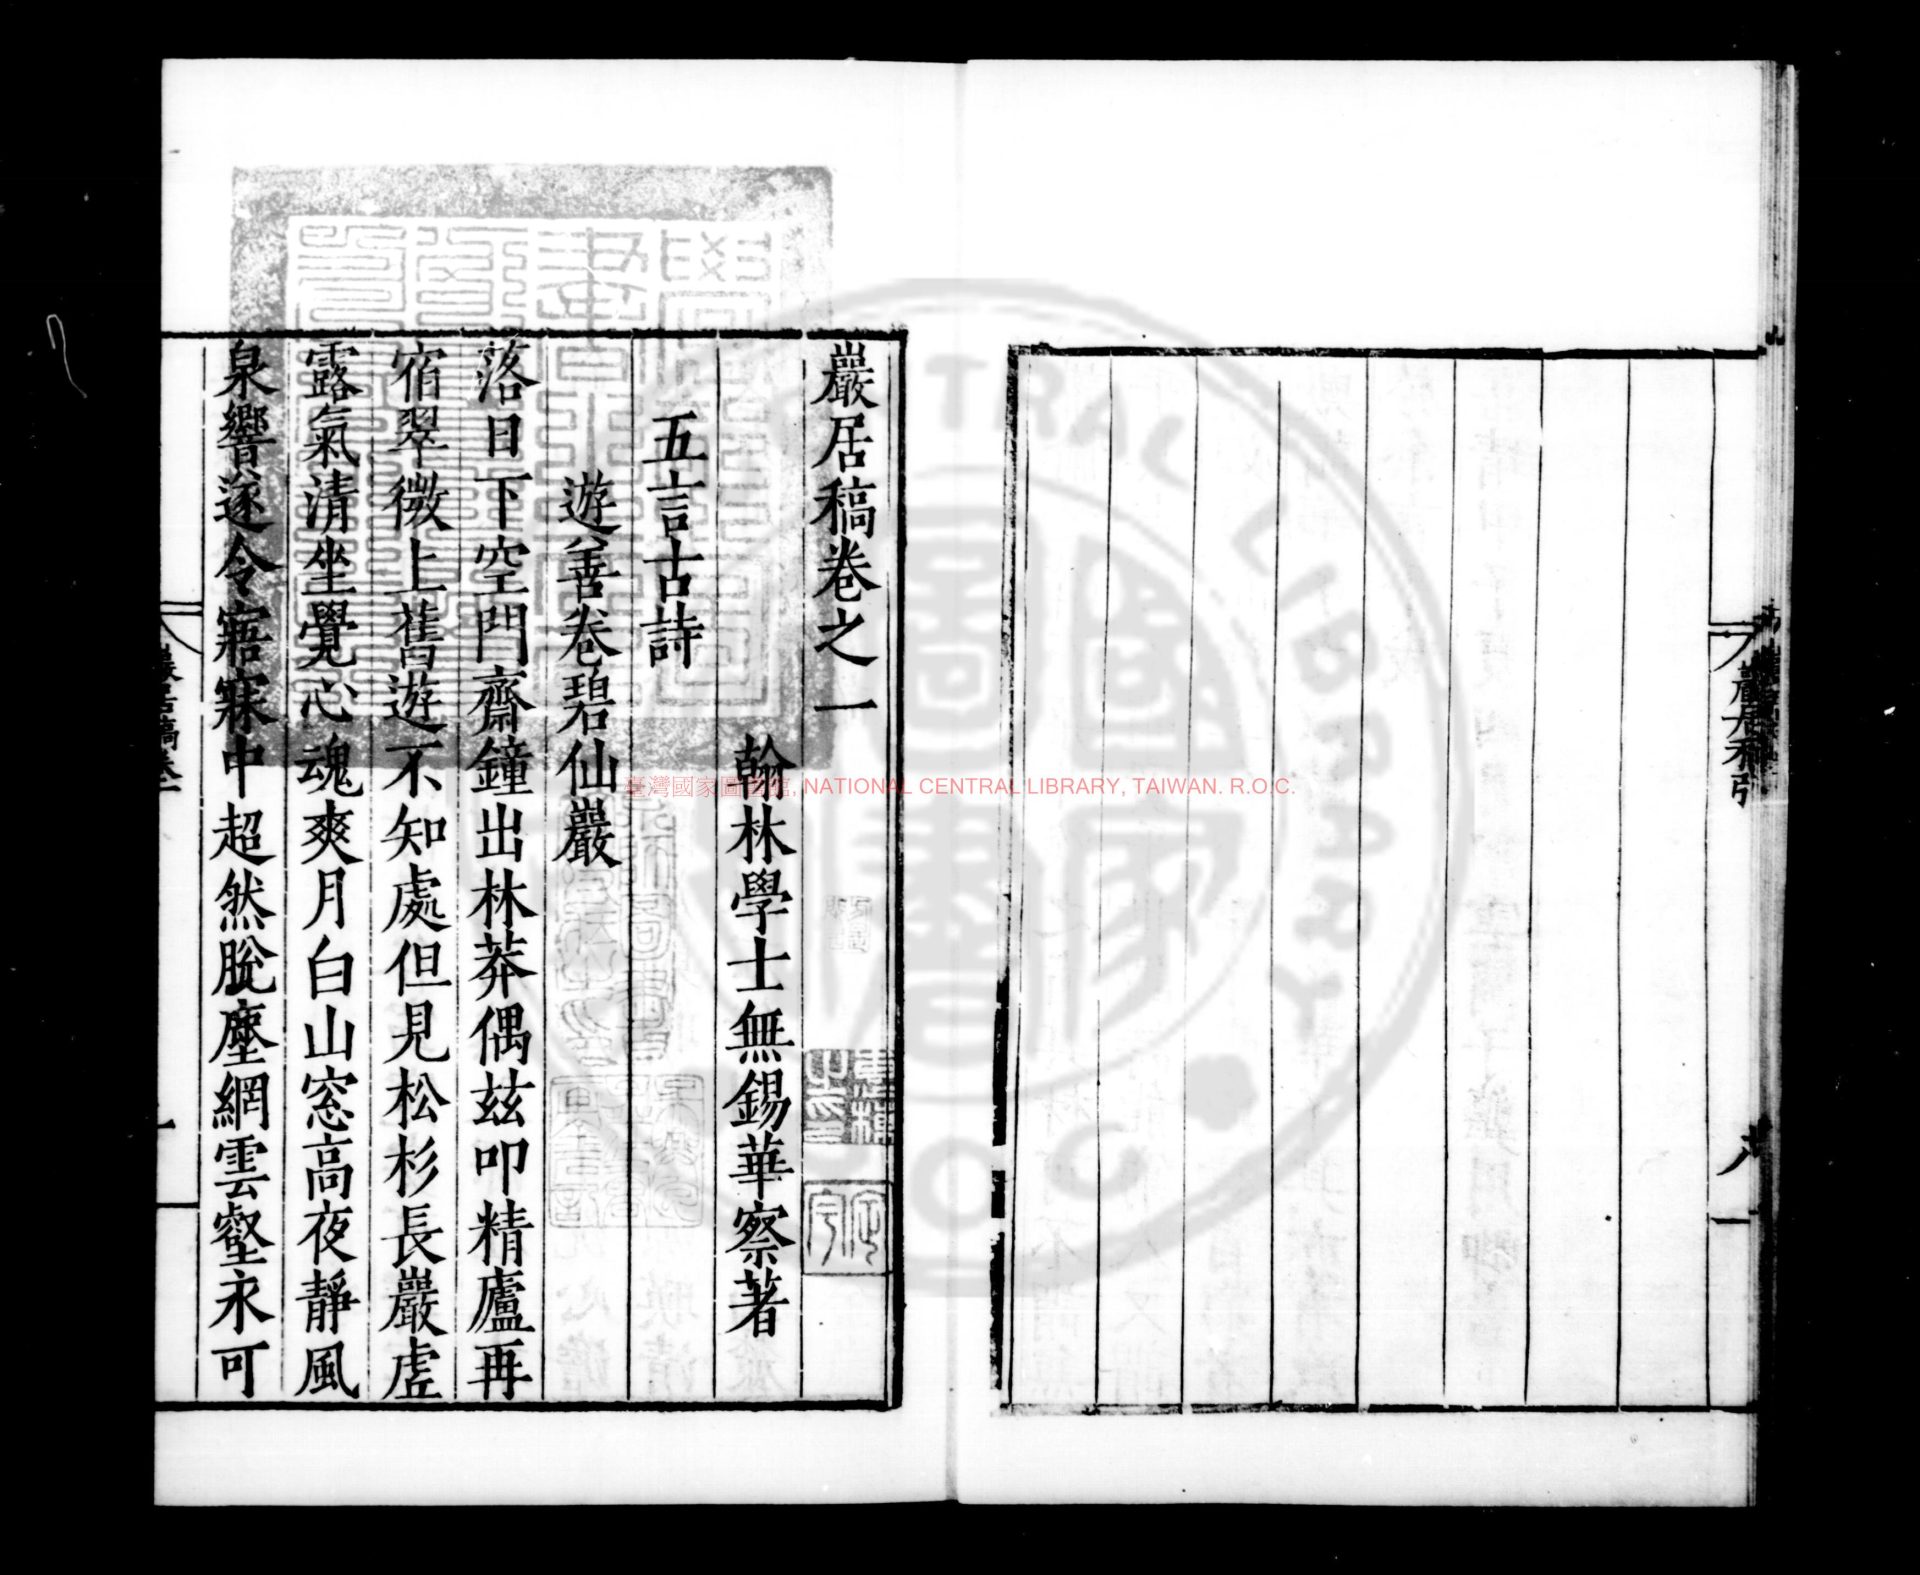 巖居稿卷之一
翰林學士無錫華察著
五言古詩
遊善卷碧仙巖
落日下空門齋鐘出林莽偶茲叩精廬再
宿翠微上舊遊不知處但見松杉長巖虛
露氣清坐覺心魂爽月白山窓高夜靜風
泉響遂令寤寐中超然脫塵網雲壑永可
巖居稿卷一
一
臺灣國家圖書館, NATIONAL CENTRAL LIBRARY, TAIWAN. R.O.C.